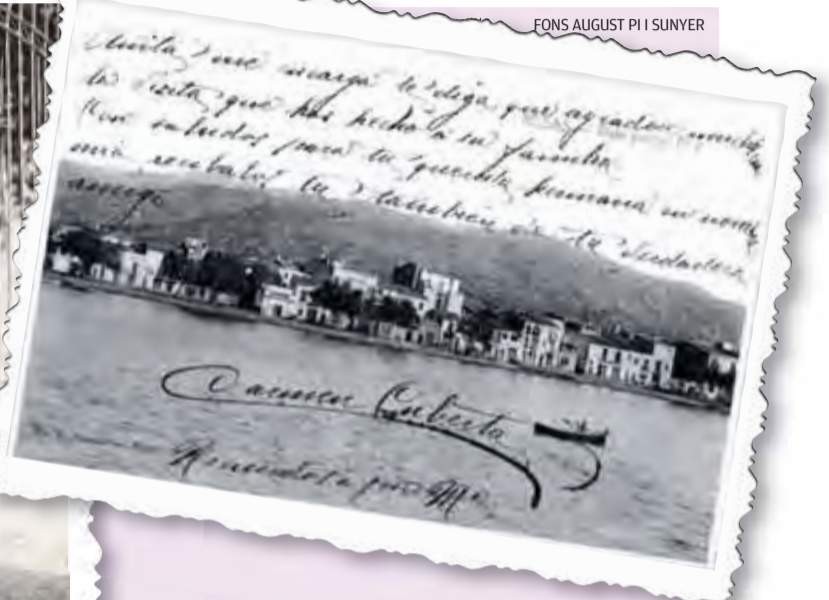 FONS AUGUST PI I SUNYER
Anita, me encarga te diga que agradece mucho
la visita que has hecho a su familia
Con saludos para tu querida hermana
recíbalos tu, tambien de tu verdadera
amiga
Carmen Cuberta
Recuerdos a